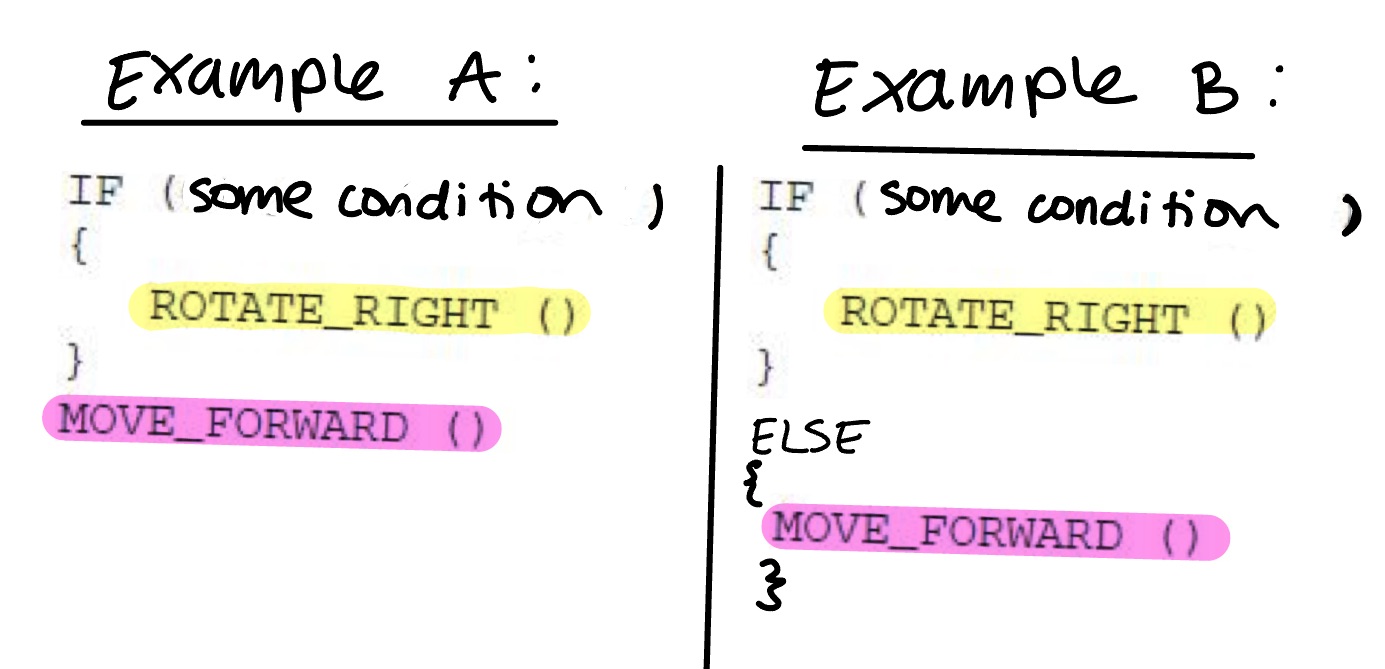 Example A:
IF (some condition )
{
ROTATE_RIGHT ()
}
MOVE_FORWARD ()
Example B:
IF (some condition )
{
ROTATE_RIGHT ()
}
ELSE
{
MOVE_FORWARD ()
}